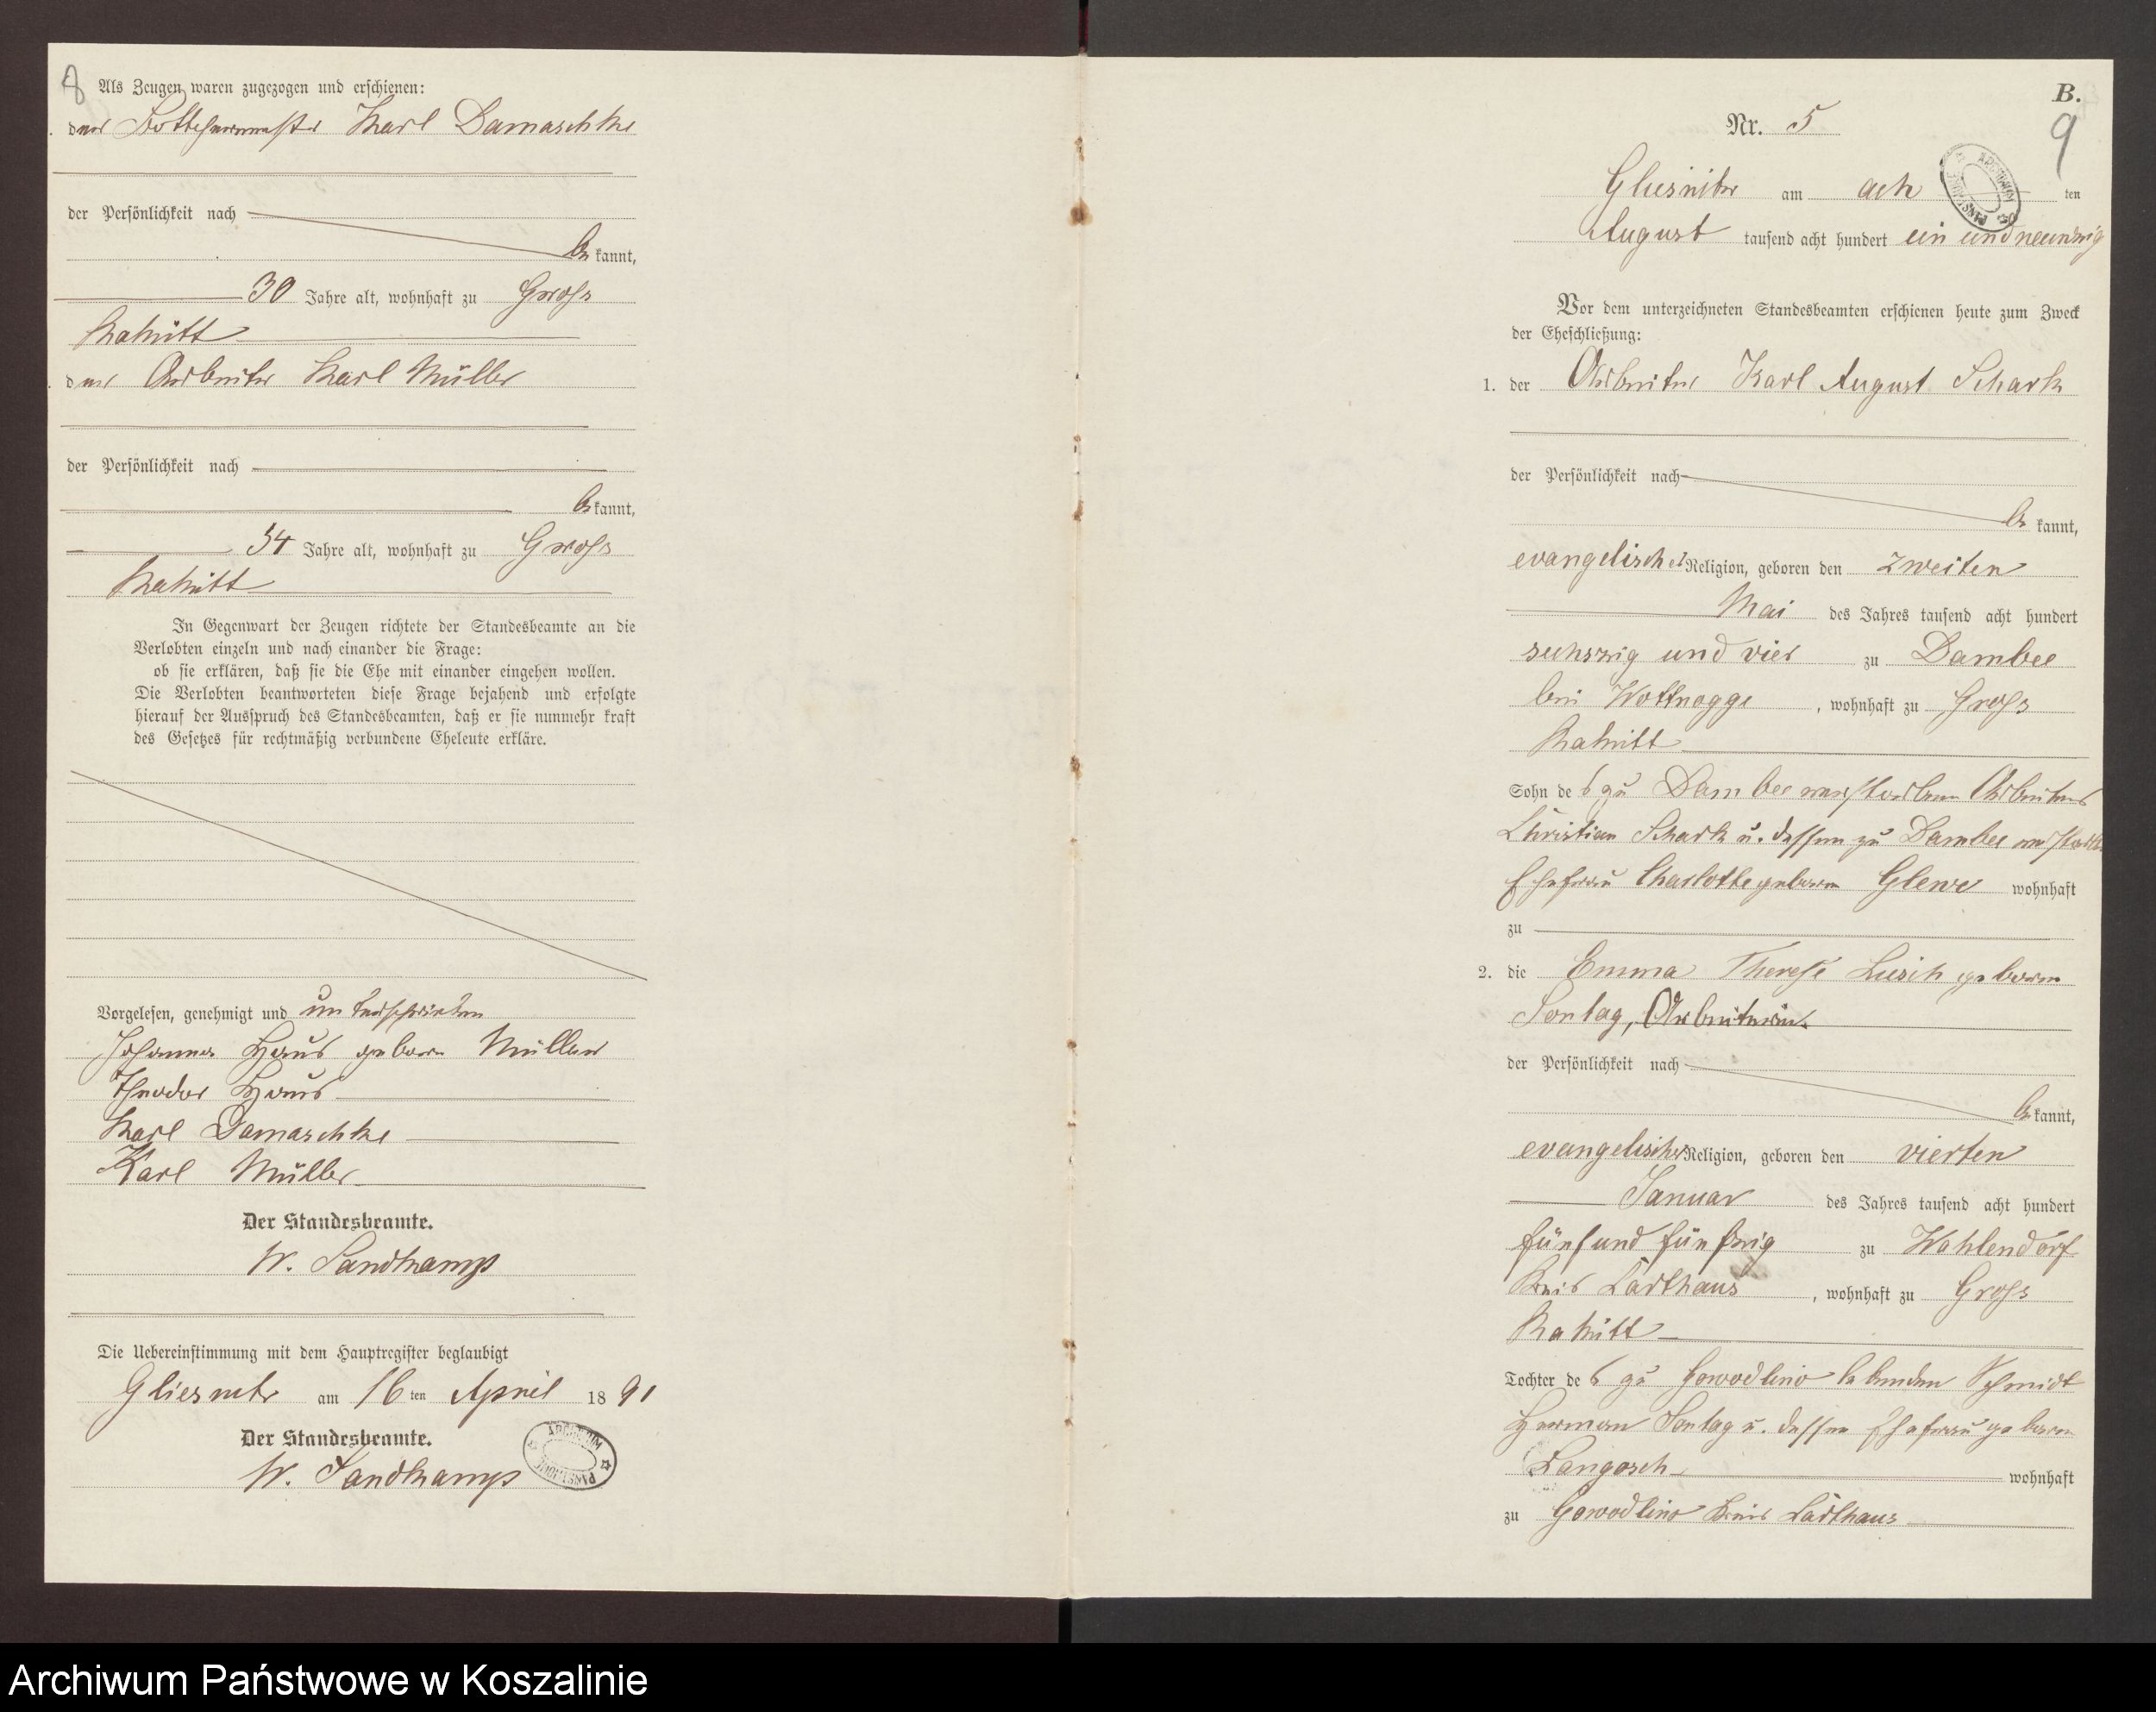 8
Als Zeugen waren zugezogen und erschienen:
der Karl Damaschke
der Persönlichkeit nach
be kannt,
30 Jahre alt, wohnhaft zu Gross
Rakitt
der Arbeiter Karl Müller
der Persönlichkeit nach
be kannt,
34 Jahre alt, wohnhaft zu Gross
Rakitt
In Gegenwart der Zeugen richtete der Standesbeamte an die
Verlobten einzeln und nach einander die Frage:
ob sie erklären, daß sie die Ehe mit einander eingehen wollen.
Die Verlobten beantworteten diese Frage bejahend und erfolgte
hierauf der Ausspruch des Standesbeamten, daß er sie nunmehr kraft
des Gesetzes für rechtmäßig verbundene Eheleute erkläre.
Vorgelesen, genehmigt und unterschrieben
Johanna Haus geboren Müller
Theodor Haus
Karl Damaschke
Karl Müller
Der Standesbeamte.
W. Sandkamp
Die Uebereinstimmung mit dem Hauptregister beglaubigt
Gliesnitz am 16 ten April 18 91
Der Standesbeamte.
W. Sandkamp
B.
9
Nr. 5
Gliesnitz am ach ten
August tausend acht hundert ein und neunzig
Vor dem unterzeichneten Standesbeamten erschienen heute zum Zweck
der Eheschließung:
1. der Arbeiter Karl August Schark
der Persönlichkeit nach
be kannt,
evangelischer Religion, geboren den zweiten
Mai des Jahres tausend acht hundert
sechszig und vier zu Dambee
bei Wottnogge, wohnhaft zu Gross
Rakitt
Sohn des zu Dambee verstorbenen Arbeiters
Christian Schark u. dessen zu Dambee
Ehefrau Charlotte geboren Glewe wohnhaft
zu
2. die Emma Therese Lusch geboren
Sontag, Arbeiterin
der Persönlichkeit nach
be kannt,
evangelischer Religion, geboren den vierten
Januar des Jahres tausend acht hundert
fünf und fünfzig zu Wahlendorf
Kreis Carthaus, wohnhaft zu Gross
Rakitt
Tochter des zu Gowodlino lebenden Schmidt
Herman Sontag u. dessen Ehefrau geboren
Langosch wohnhaft
zu Gowodlino Kreis Carthaus
Archiwum Państwowe w Koszalinie